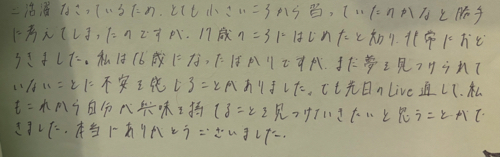 ご活躍なさっているため、とても小さいころから習っていたのかなと勝手
に考えてしまったのですが、17歳のころにはじめたと知り、非常におど
ろきました。私は16歳になったばかりですが、まだ夢を見つけられて
いないことに不安を感じることがありました。でも先日のLive通して、私
もこれから自分が興味を持てることを見つけていきたいと思うことがで
きました。本当にありがとうございました。